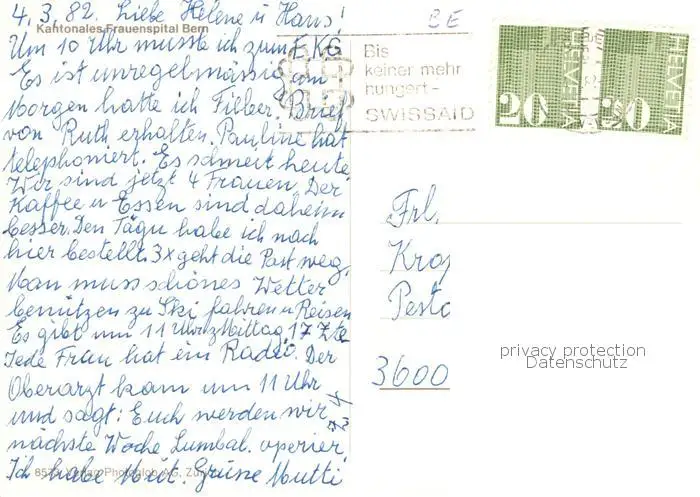 4. 3. 82. Liebe Helene u Hans!
Kantonales Frauenspital Bern
Um 10 Uhr musste ich zum EKG
Es ist unregelmässig am
Morgen hatte ich Fieber. Brief
von Ruth erhalten. Pauline hat
telephoniert. Es schneit heute
Wir sind jetzt 4 Frauen. Der
Kaffee u Essen sind daheim
besser. Den Tägu habe ich nach
hier bestellt. 3x geht die Post weg.
Man muss schönes Wetter
benützen zu Ski fahren u Reisen
Es gibt um 11 Uhr z Mittag, 17 z
Jede Frau hat ein Radio. Der
Oberarzt kam um 11 Uhr
und sagt: Euch werden wir
nächste Woche Lumbal. operier.
Ich habe Mut. Grüsse Mutti
Verlag Photoglob AG, Zür
BE
Bis
keiner mehr
hungert-
SWISSAID
20 HELVETIA
20 HELVETIA
Frl.
Kro
Pesta
3600
privacy protection
Datenschutz